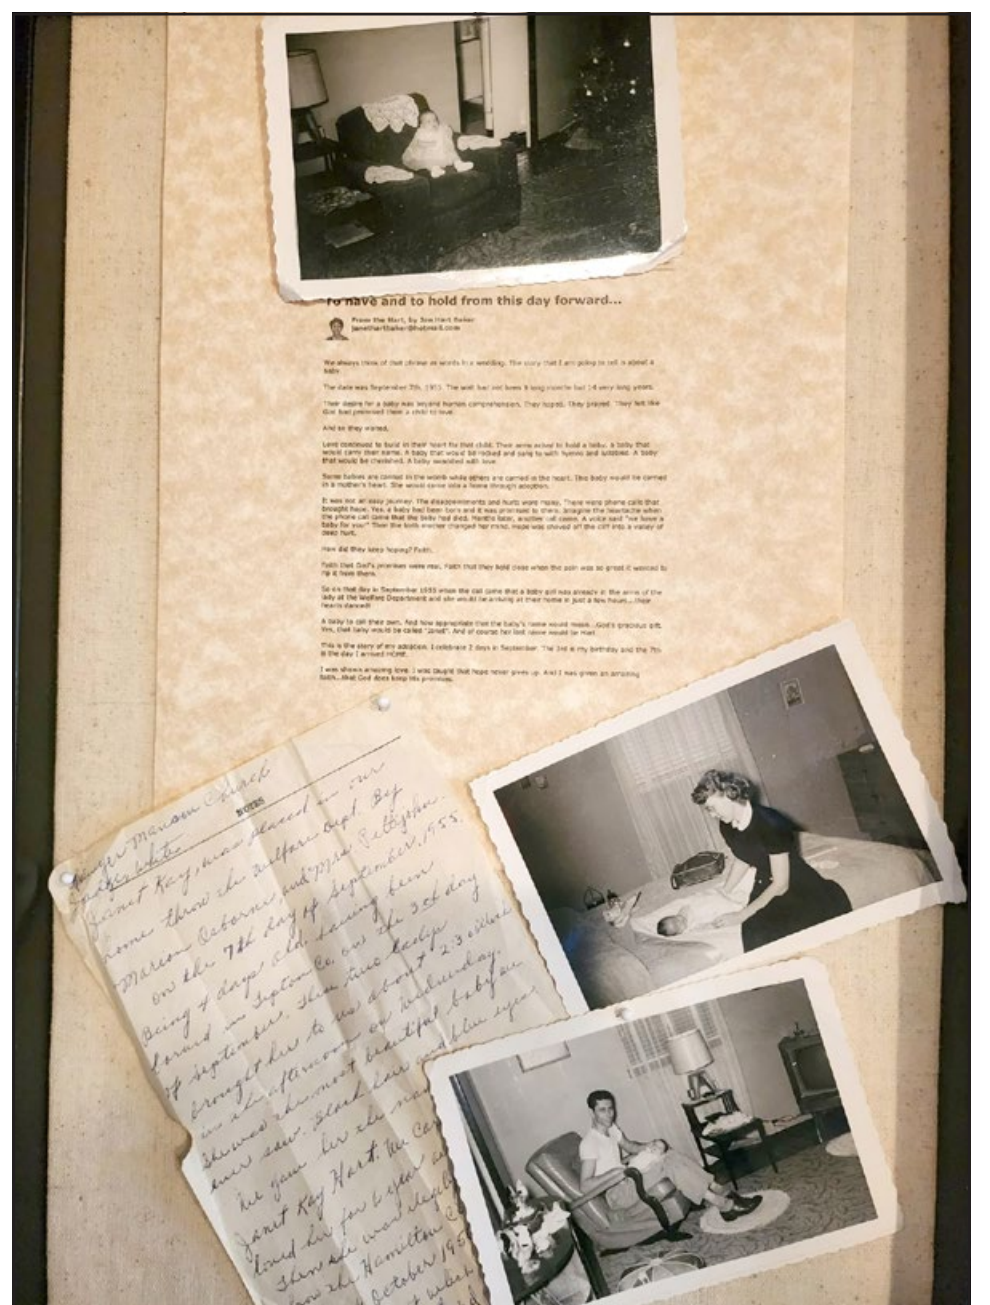 To have and to hold from this day forward...
From the Hart, by Jan Hart Baker
janethartbaker@hotmail.com
We always think of that phrase as words in a wedding. The story that I am going to tell is about a
baby.
The date was September 7th, 1955. The wait had not been 9 long months but 14 very long years.
Their desire for a baby was beyond human comprehension. They hoped. They prayed. They felt like
God had promised them a child to love.
And so they waited.
Love continued to build in their heart for that child. Their arms ached to hold a baby. A baby that
would carry their name. A baby that would be rocked and sang to with hymns and lullabies. A baby
that would be cherished. A baby surrounded with love.
Some babies are carried in the womb while others are carried in the heart. This baby would be carried
in a mother's heart. She would come into a home through adoption.
It was not an easy journey. The disappointments and hurts were many. There were phone calls that
brought hope. Yes, a baby had been born and it was promised to them. Imagine the heartache when
the phone call came that the baby had died. Months later, another call came. A voice said "we have a
baby for you!" Then the birth mother changed her mind. Hope was shoved off the cliff into a valley of
deep hurt.
How did they keep hoping? Faith.
Faith that God's promises were real. Faith that they held close when the pain was so great it wanted to
rip it from them.
So on that day in September 1955 when the call came that a baby girl was already in the arms of the
lady at the Welfare Department and she would be arriving at their home in just a few hours...their
hearts danced!
A baby to call their own. And how appropriate that the baby's name would mean...God's gracious gift.
Yes, that baby would be called "Janet". And of course her last name would be Hart.
This is the story of my adoption. I celebrate 2 days in September. The 3rd is my birthday and the 7th
is the day I arrived HOME.
I was shown amazing love. I was taught that hope never gives up. And I was given an amazing
faith...that God does keep His promises.
Marion Church
NOTES
White
Janet Kay, was placed in our
home throw the wulfare Dept. By
Marion Osborne and Mrs. Pettijohn.
on the 7th day of September, 1955.
Being 4 days old. having been
borned in Tipton Co. on the 3rd day
of september. These two ladies
brought her to us about 2:3 oclock
in the afternoon on Wednesday.
She was the most beautiful baby we
ever saw. Black hair and blue eyes.
We gave her the nam
Janet Kay Hart. We Car
loved her for a year an
Then she was legally
throw the Hamilton C
October 195
which